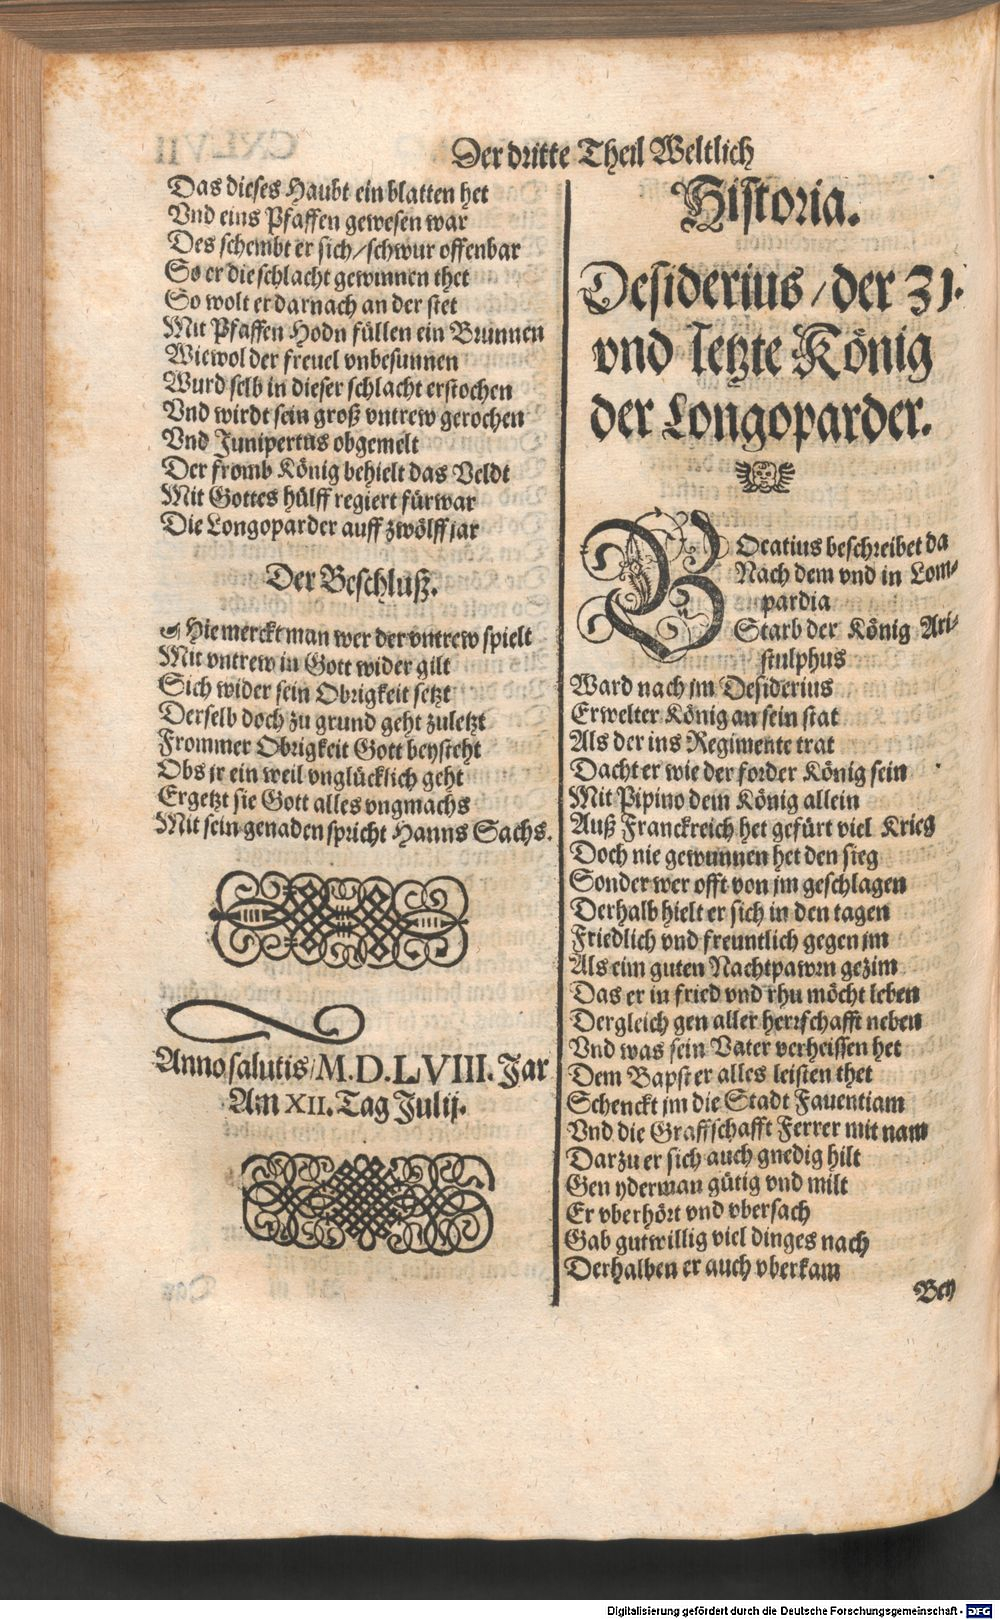 Der dritte Theil Weltlich
Das dieses Haubt ein blatten het
Vnd eins Pfaffen gewesen war
Des schembt er sich/schwur offenbar
So er die schlacht gewinnen thet
So wolt er darnach an der stet
Mit Pfaffen Hodn füllen ein Brunnen
Wiewol der freuel vnbesunnen
Wurd selb in dieser schlacht erstochen
Vnd wirdt sein groß vntrew gerochen
Vnd Junipertus obgemelt
Der fromb König behielt das Veldt
Mit Gottes hülff regiert fürwar
Die Longoparder auff zwölff jar
Der Beschluß.
Hie merckt man wer der vntrew spielt
Mit vntrew in Gott wider gilt
Sich wider sein Obrigkeit setzt
Derselb doch zu grund geht zuletzt
Frommer Obrigkeit Gott beysteht
Obs jr ein weil vnglücklich geht
Ergetzt sie Gott alles vngmachs
Mit sein genaden spricht Hanns Sachs.
Anno salutis/M.D.LVIII. Jar
Am XII. Tag Julij.
Historia.
Desiderius/der 31.
vnd letzte König
der Longoparder.
BOcatius beschreibet da
Nach dem vnd in Lom-
pardia
Starb der König Ari-
stulphus
Ward nach jm Desiderius
Erwelter König an sein stat
Als der ins Regimente trat
Dacht er wie der forder König sein
Mit Pipino dem König allein
Auß Franckreich het gefürt viel Krieg
Doch nie gewunnen het den sieg
Sonder wer offt von jm geschlagen
Derhalb hielt er sich in den tagen
Friedlich vnd freuntlich gegen jm
Als eim guten Nachtpawrn gezim
Das er in fried vnd rhu möcht leben
Dergleich gen aller herrschafft neben
Vnd was sein Vater verheissen het
Dem Bapst er alles leisten thet
Schenckt jm die Stadt Fauentiam
Vnd die Graffschafft Ferrer mit nam
Darzu er sich auch gnedig hilt
Gen yderman gütig vnd milt
Er vberhört vnd vbersach
Gab gutwillig viel dinges nach
Derhalben er auch vberkam
Bey
Digitalisierung gefördert durch die Deutsche Forschungsgemeinschaft - DFG